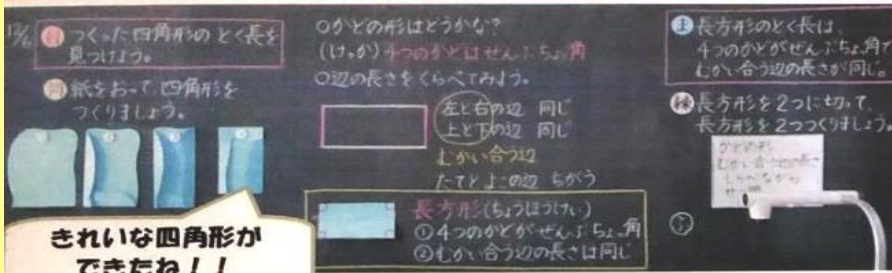 12/6
つくった四角形のとく長を
見つけよう。
紙をおって、四角形を
つくりましょう。
きれいな四角形が
できたね!!
○かどの形はどうかな?
(けっか)4つのかどはぜんぶちょっ角
○辺の長さをくらべてみよう。
左と右の辺 同じ
上と下の辺 同じ
むかい合う辺
たてとよこの辺 ちがう
長方形(ちょうほうけい)
①4つのかどがぜんぶちょっ角
②むかい合う辺の長さは同じ
ま 長方形のとく長は、
4つのかどがぜんぶちょっ角で
むかい合う辺の長さが同じ。
練 長方形を2つに切って、
長方形を2つつくりましょう。
かどの形
むかい合う辺の長さ
しらべながら
ふ